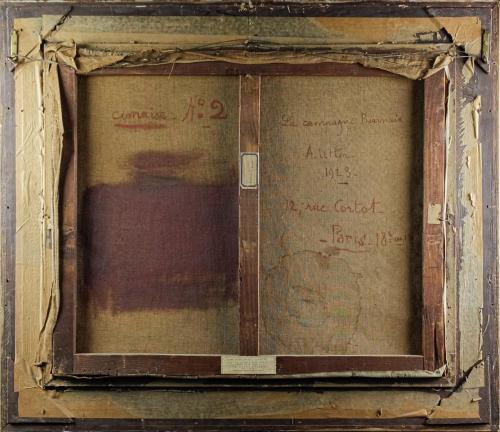 cimaise - No 2
La campagne Biarnaise
A. Utter
1923 -
12, rue Cortot -
- Paris - 18ème